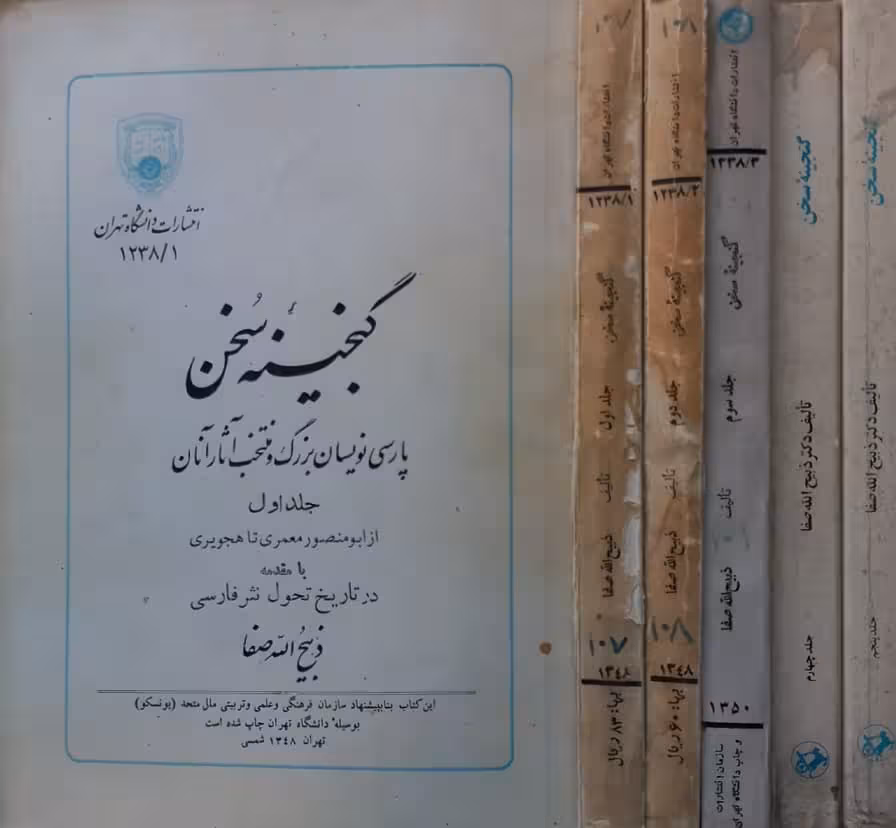 انتشارات دانشگاه تهران
۱۲۳۸/۱
گنجینهٔ سُخن
پارسی نویسان بزرگ و منتخب آثار آنان
جلد اول
از ابو منصور معمری تا هجویری
با مقدمه
در تاریخ تحول نثر فارسی
ذبیح اللّه صفا
این کتاب بنا بپیشنهاد سازمان فرهنگی و علمی و تربیتی ملل متحد (یونسکو)
بوسیلهٔ دانشگاه تهران چاپ شده است
تهران ۱۳۴۸ شمسی
۱۰۷
انتشارات دانشگاه تهران
۱۲۳۸/۱
گنجینهٔ سخن
جلد اول
تألیف
ذبیح الله صفا
۱۰۷
۱۳۴۸
بها: ۸۳ ریال
۱۰۸
انتشارات دانشگاه تهران
۱۲۳۸/۲
گنجینهٔ سخن
جلد دوم
تألیف
ذبیح الله صفا
۱۰۸
۱۳۴۸
بها: ۶۰ ریال
انتشارات دانشگاه تهران
۱۲۳۸/۳
گنجینهٔ سخن
جلد سوم
تألیف
ذبیح الله صفا
۱۳۵۰
سازمان انتشارات
و چاپ دانشگاه تهران
گنجینهٔ سخن
تألیف دکتر ذبیح الله صفا
جلد چهارم
گنجینهٔ سخن
تألیف دکتر ذبیح الله صفا
جلد پنجم